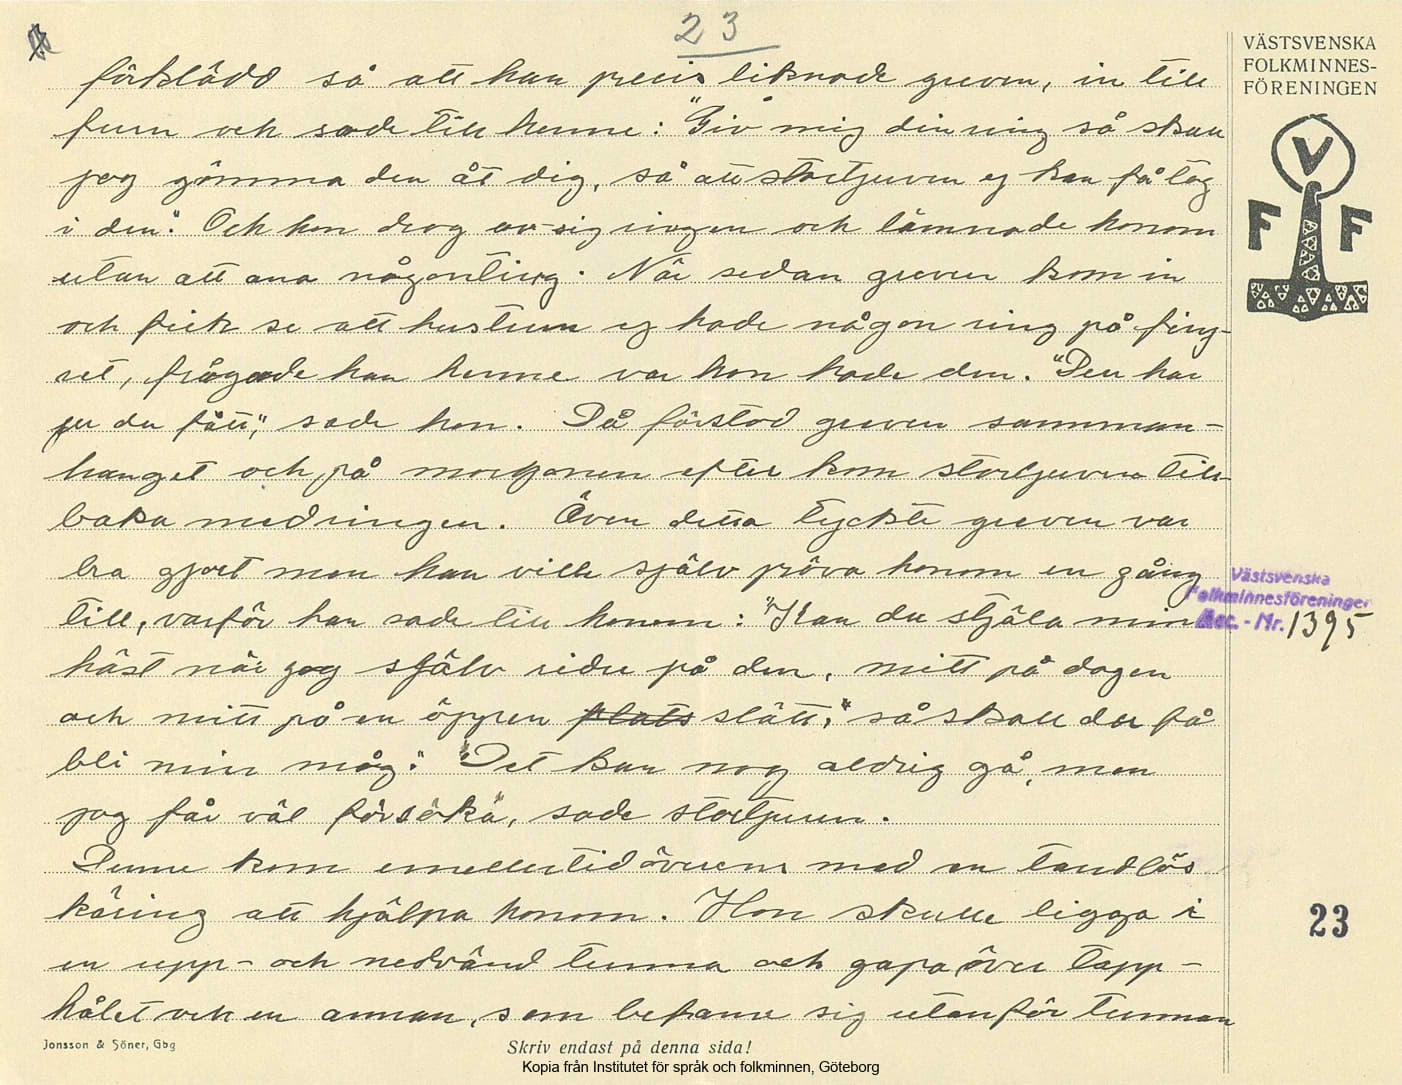 23
förklädd så att han precis liknade greven, in till
frun och sade till henne: "Giv mig din ring så skall
jag gömma den åt dig, så att stortjuven ej kan få tag
i den". Och hon drog av sig ringen och lämnade honom
utan att ana någonting. När sedan greven kom in
och fick se att hustrun ej hade någon ring på fing-
ret, frågade han henne var hon hade den. "Den har
ju du fått", sade hon. Då förstod greven samman-
hanget och på morgonen efter kom stortjuven till-
baka med ringen. Även detta tyckte greven var
bra gjort men han ville själv pröva honom en gång
till, varför han sade till honom: "Kan du stjäla min
häst när jag själv rider på den, mitt på dagen
och mitt på en öppen plats slätt," så skall du få
bli min måg." "Det kan nog aldrig gå, men
jag får väl försöka", sade stortjuven.
Denne kom emellertid överens med en tandlös
käring att hjälpa honom. Hon skulle ligga i
en upp- och nedvänd tunna och gapa över tapp-
hålet och en annan, som befann sig utanför tunnan
VÄSTSVENSKA
FOLKMINNES-
FÖRENINGEN
V
F F
Västsvenska
Folkminnesföreningen
Acc.-Nr. 1395
23
Jonsson & Söner, Gbg
Skriv endast på denna sida!
Kopia från Institutet för språk och folkminnen, Göteborg